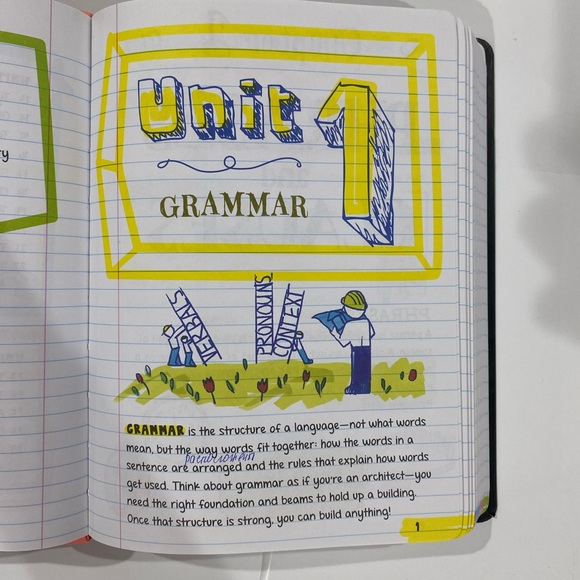 ty
Unit 1
GRAMMAR
VERBALS
PRONOUNS
CONTEXT
GRAMMAR is the structure of a language—not what words
mean, but the way words fit together: how the words in a
sentence are arranged and the rules that explain how words
get used. Think about grammar as if you're an architect—you
need the right foundation and beams to hold up a building.
Once that structure is strong, you can build anything!
1